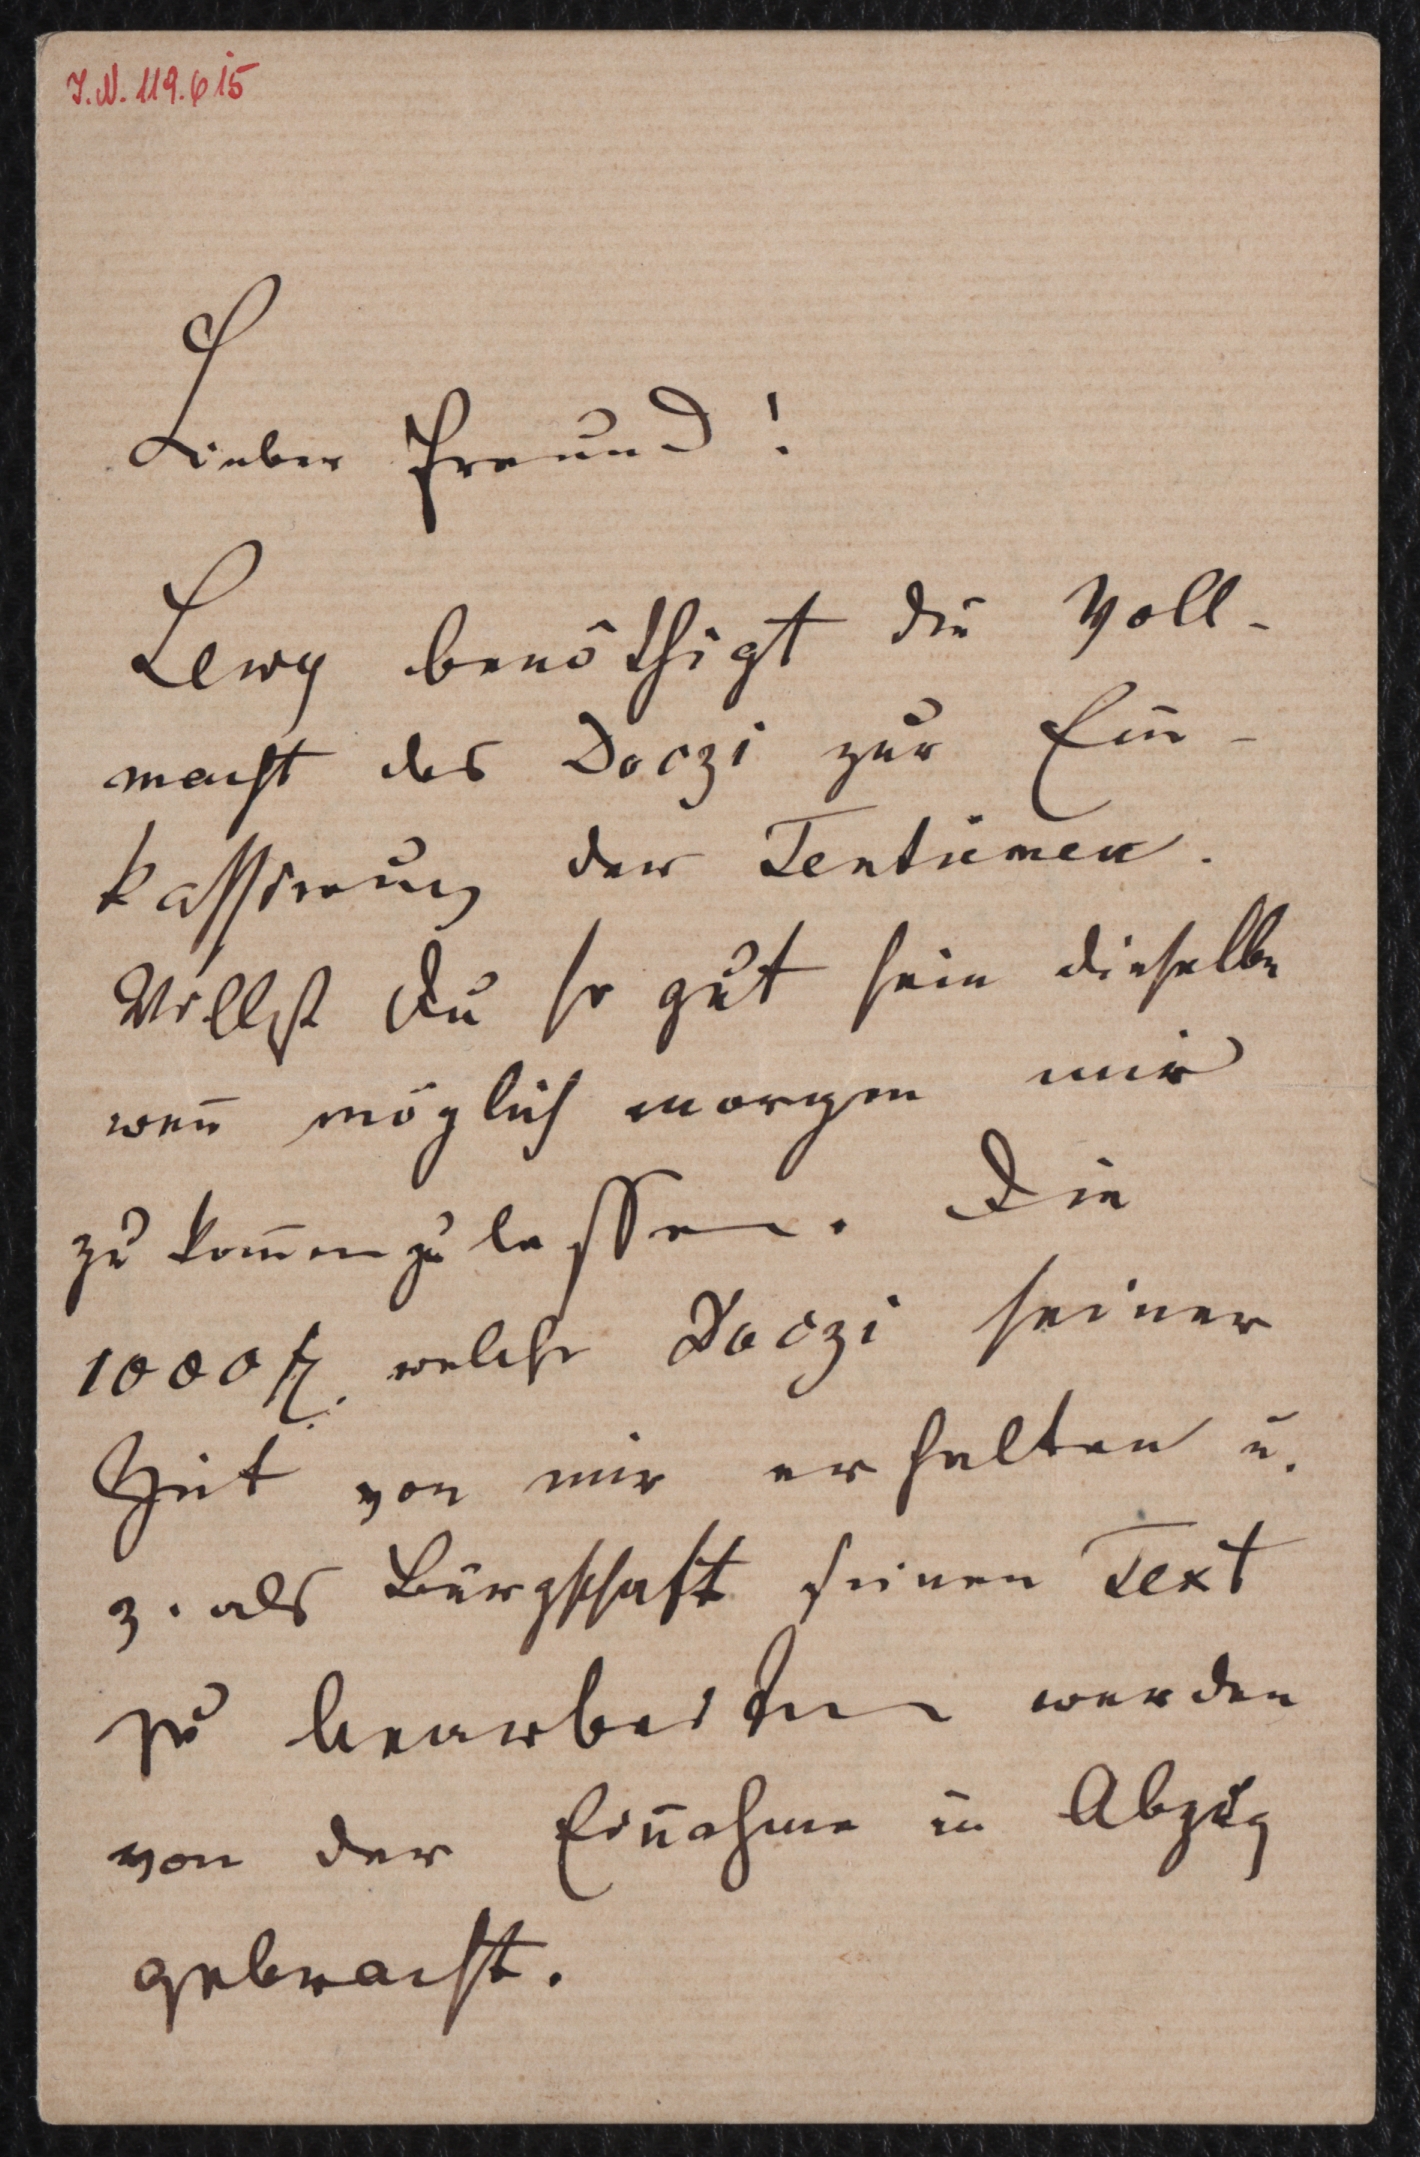 I.N. 119.615
Lieber Freund!
Lewy benöthigt die Voll-
macht des Doczi zur Ein-
kassirung der Tentiemen.
Willst Du so gut sein dieselbe
weñ möglich morgen mir
zu kom̄en zu lassen. Die
1000 fl. welche Doczi seiner
Zeit von mir erhalten u.
z. als Bürgschaft seinen Text
zu bearbeiten werden
von der Eiñahme in Abzug
gebracht.